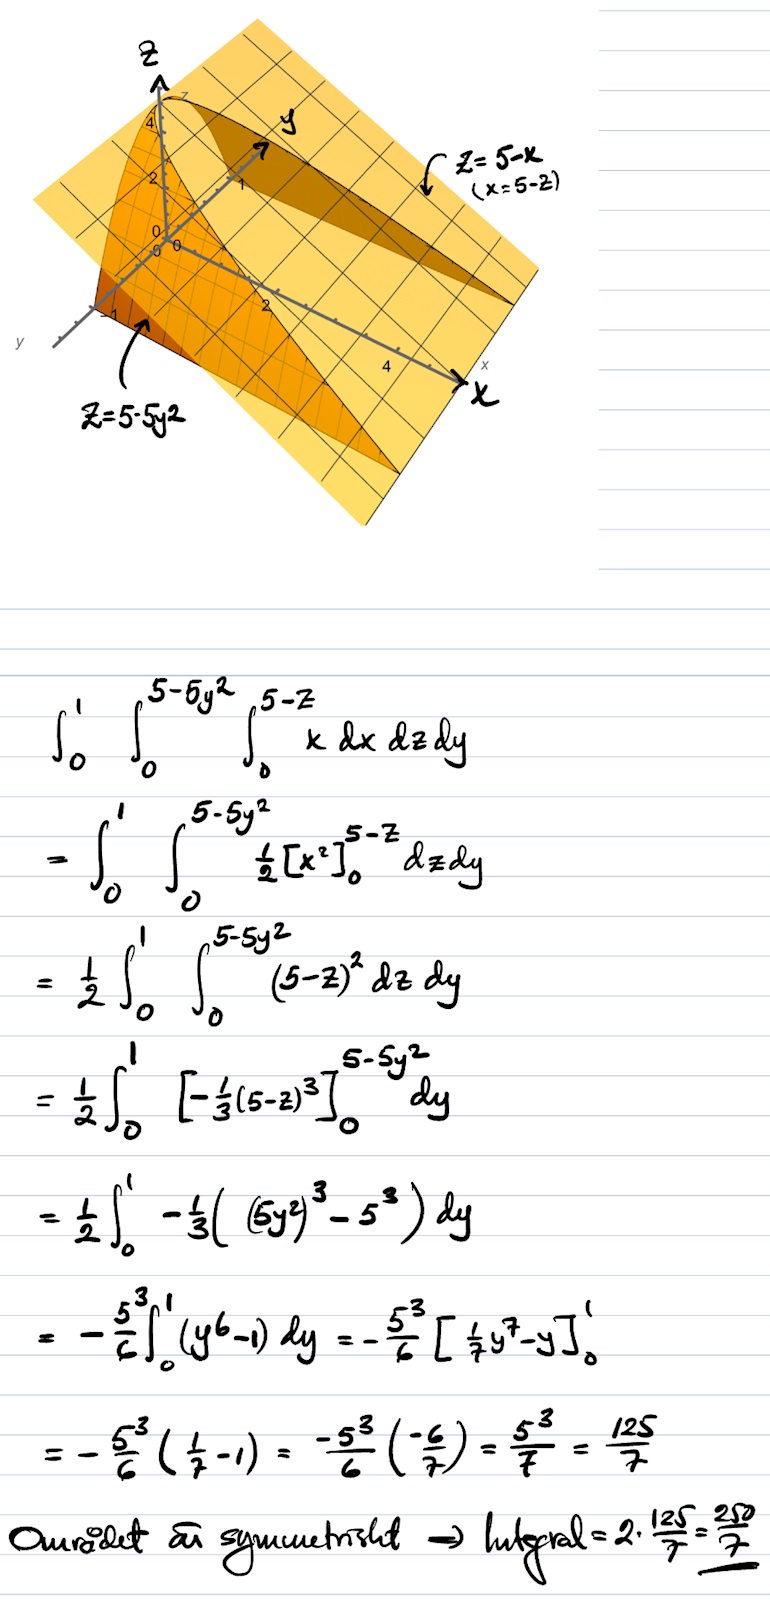 Z
z
4
y
Z = 5-x
(x = 5-Z)
2
1
0
0
0
2
-1
4
x
y
X
Z=5-5y²
∫₀¹ ∫₀^(5-5y²) ∫₀^(5-Z) x dx dz dy
= ∫₀¹ ∫₀^(5-5y²) ½ [x²]₀^(5-Z) dz dy
= ½ ∫₀¹ ∫₀^(5-5y²) (5-Z)² dz dy
= ½ ∫₀¹ [-⅓(5-z)³]₀^(5-5y²) dy
= ½ ∫₀¹ -⅓( (5y²)³ - 5³ ) dy
= -5³/6 ∫₀¹ (y⁶-1) dy = -5³/6 [1/7 y⁷-y]₀¹
= -5³/6 (1/7 -1) = -5³/6 (-6/7) = 5³/7 = 125/7
Området är symmetriskt → Integral = 2·125/7 = 250/7